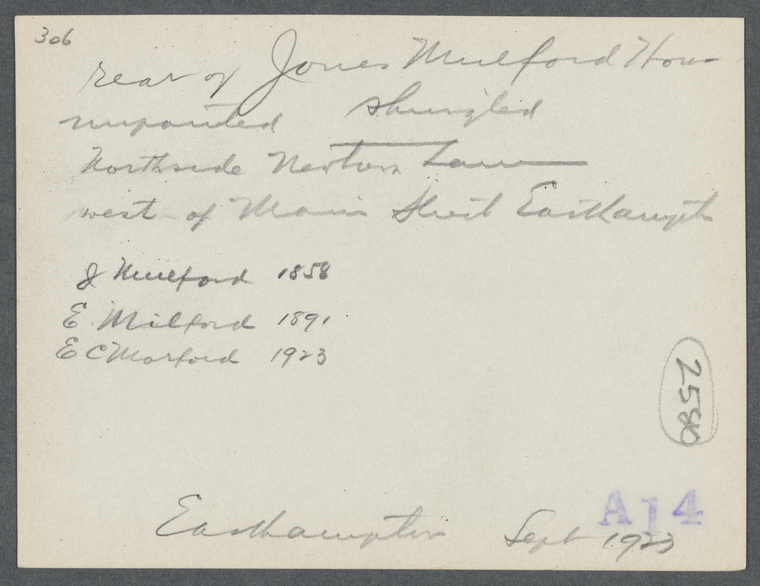 306
rear of Jones Mulford Hous
unpainted shingled
Northside Newtown Lane
west of Main Street Easthampton
J Mulford 1858
E. Milford 1891
E C Morford 1923
2580
A14
Easthampton Sept 1923